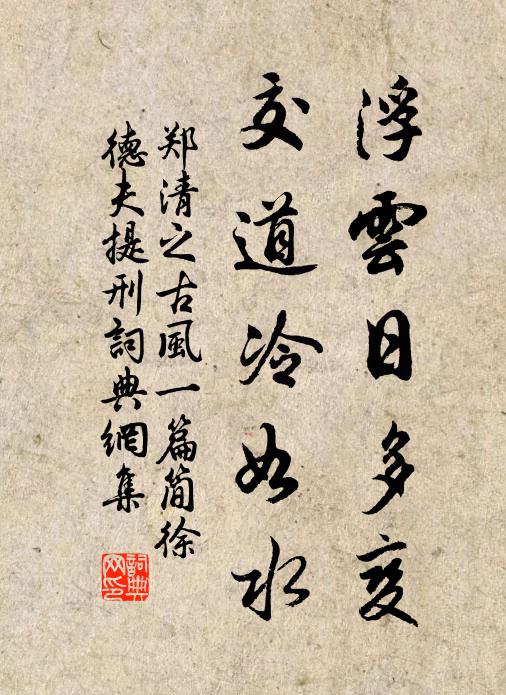 浮雲日多变
交道冷如水
郑清之古風一篇简徐
德夫提刑詞典網集
詞典
网印